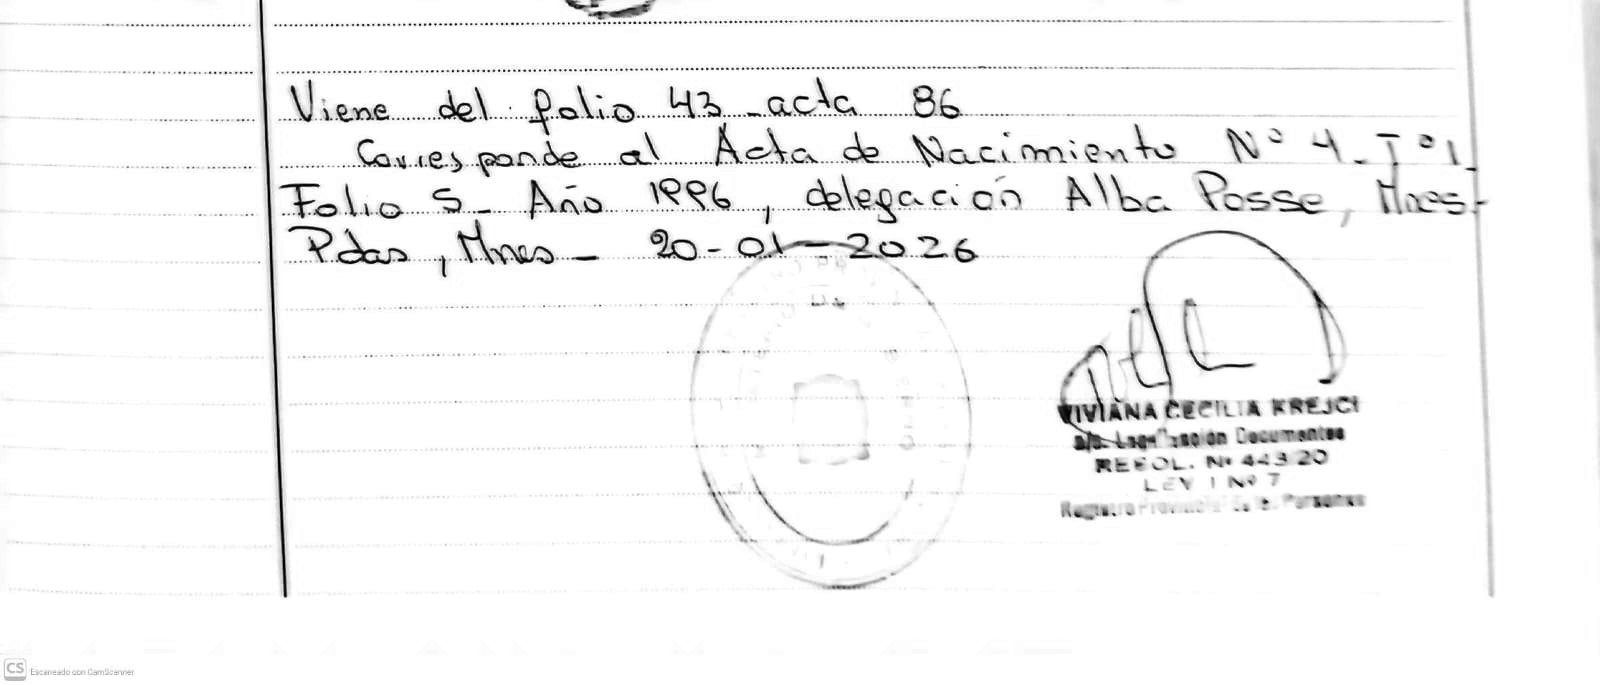 Viene del folio 43 - acta 86
Corresponde al Acta de Nacimiento Nº 4 - Tº 1 -
Folio 5 - Año 1996, delegación Alba Posse, Mnes -
Pdas, Mnes - 20-01-2026
VIVIANA CECILIA KREJCI
Documentos
RESOL. Nº 443/20
LEY I Nº 7
Registro Provincial Personas
CS Escaneado con CamScanner